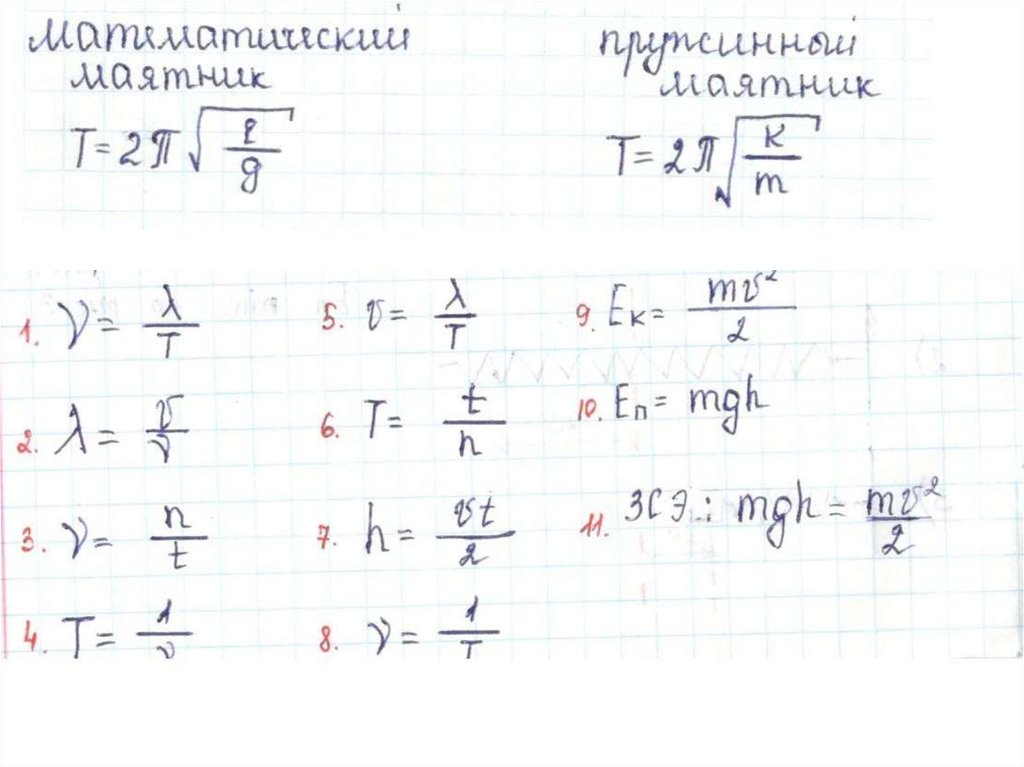 математический
маятник
T = 2π√(l/g)
пружинный
маятник
T = 2π√(k/m)
1. ν = λ/T
2. λ = v/ν
3. ν = n/t
4. T = 1/ν
5. v = λ/T
6. T = t/n
7. h = vt/2
8. ν = 1/T
9. Eк = mv²/2
10. Eп = mgh
11. ЗСЭ: mgh = mv²/2